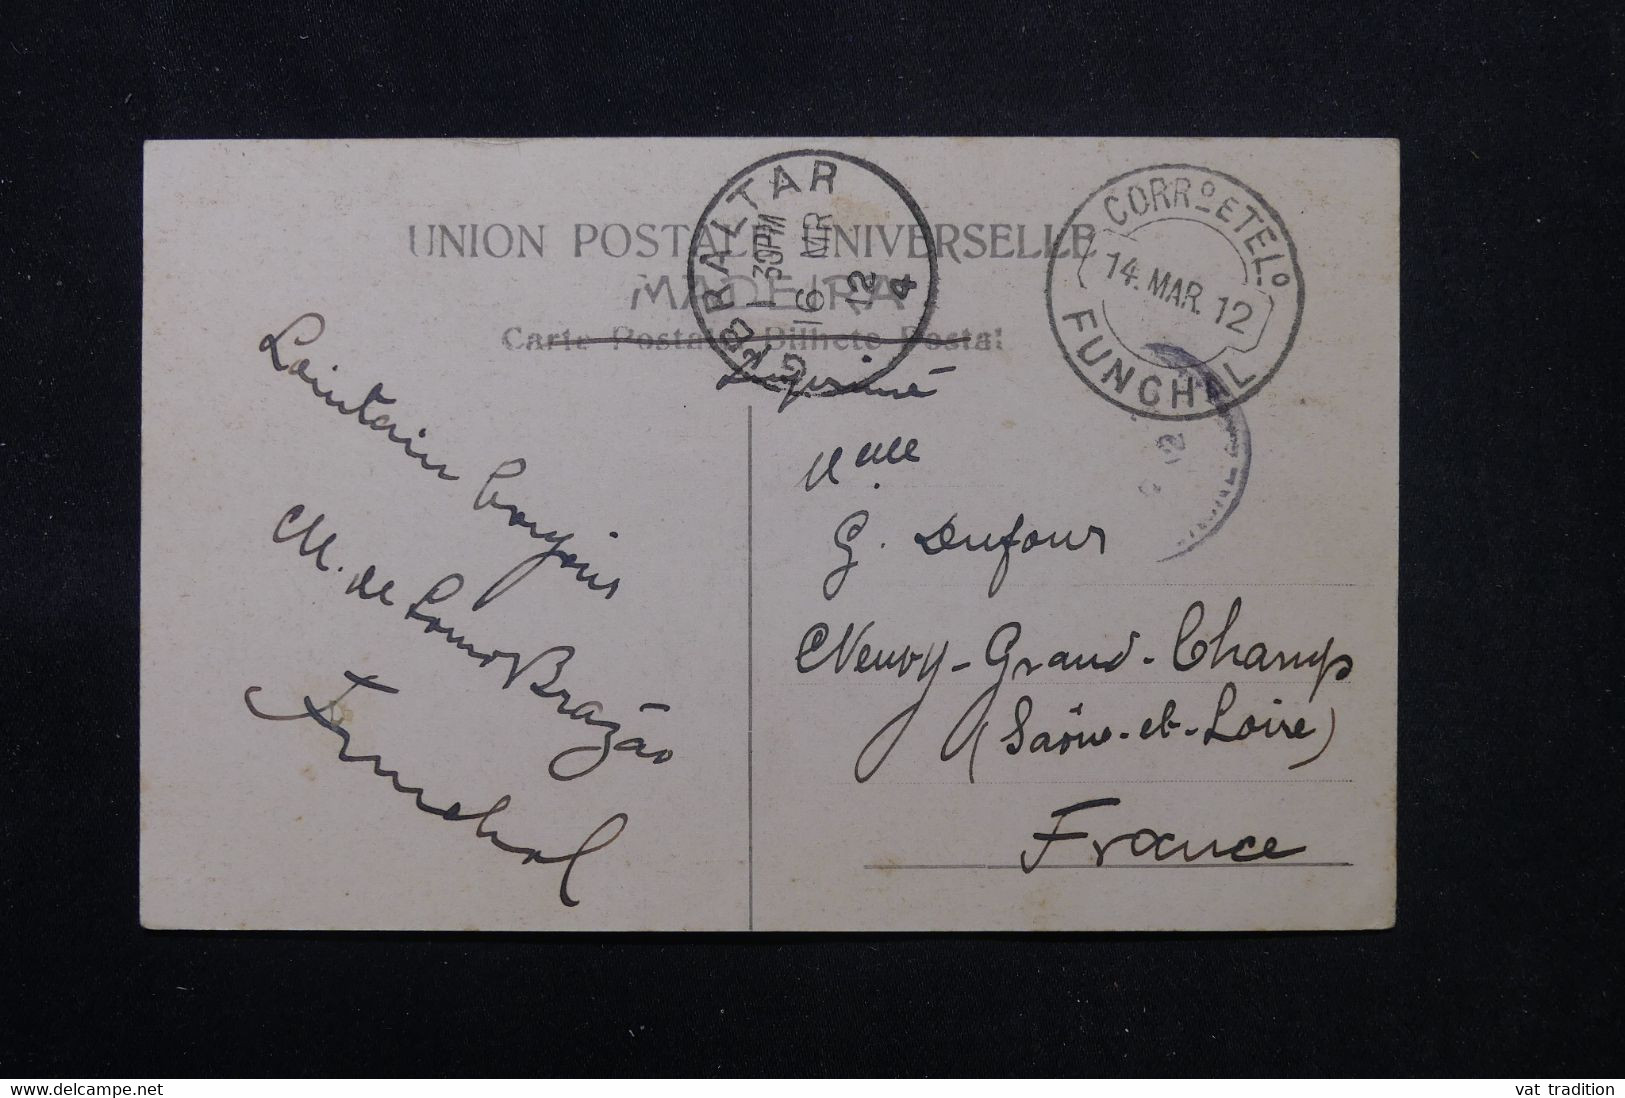 UNION POSTALE UNIVERSELLE
MADEIRA
Carte Postale Bilhete Postal
Imprimé
GIBRALTAR
1 30 PM
16 MR
12
4
CORRº E TELº
14. MAR. 12
FUNCHAL
Lointain bonjour
M. de Brazão
Funchal
Melle
G. Dufour
Neuvy-Grand-Champ
(Saône-et-Loire)
France
www.delcampe.net
vat_tradition